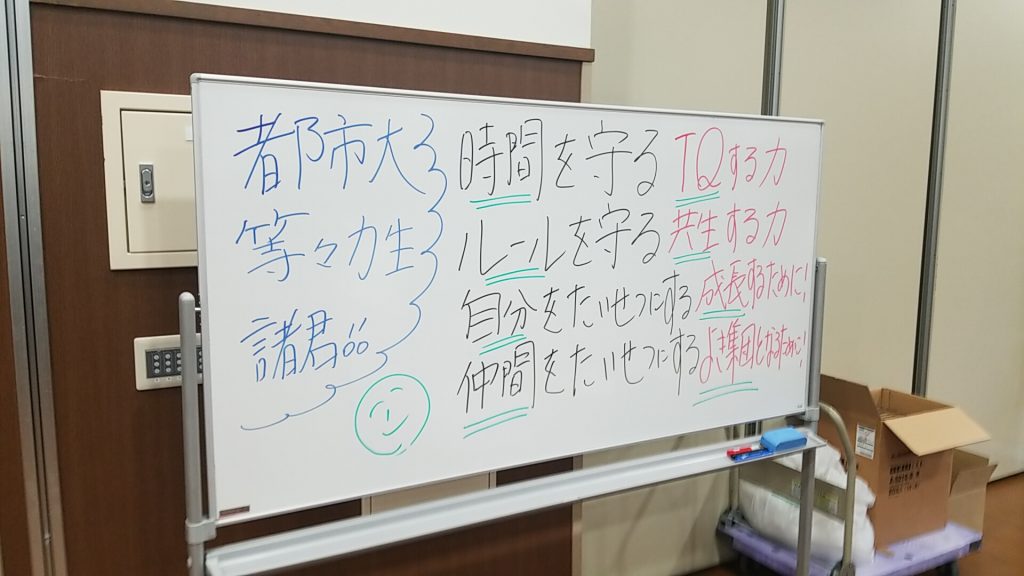 都市大
等々力生
諸君!!
時間を守る TQする力
ルールを守る 共生する力
自分をたいせつにする 成長するために!
仲間をたいせつにする よき集団となるために!